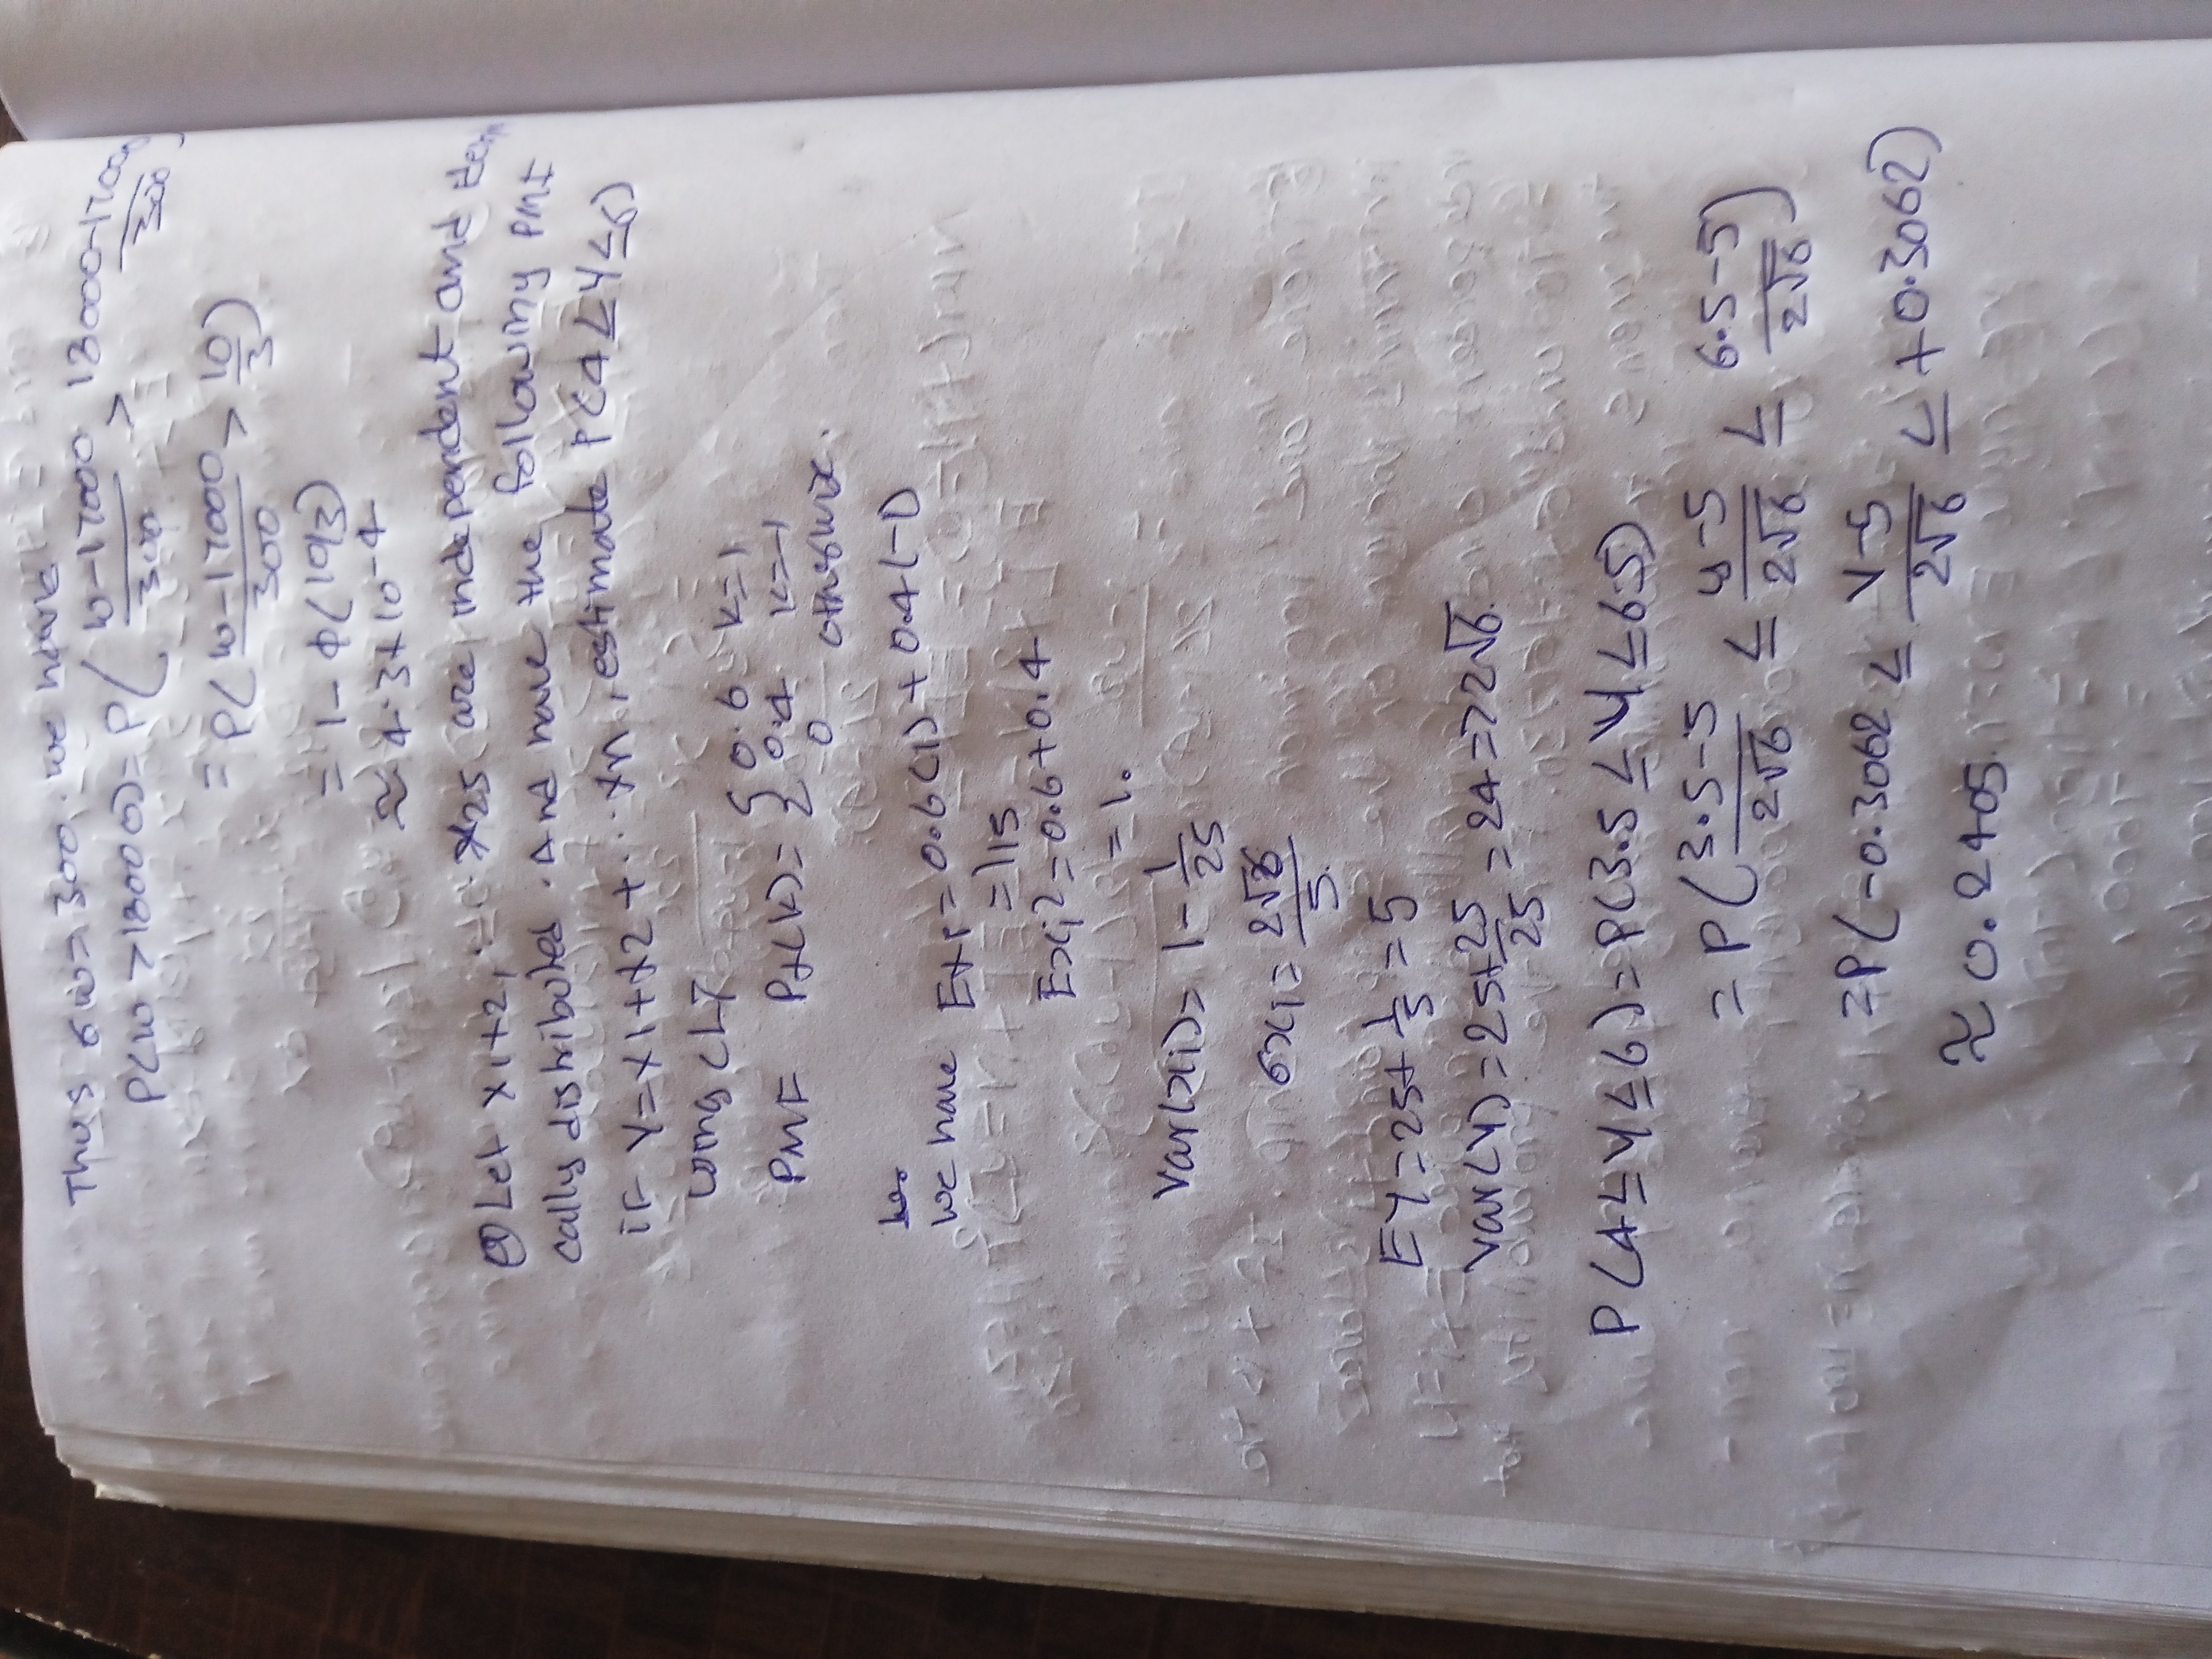 Thus σw = 300. we have
P(w > 18000) = P( w-17000 / 300 > 18000-17000 / 300
= P( w-17000 / 300 > 10/3 )
= 1 - φ(10/3)
≈ 4.3 × 10-4
Let x1+2, ... x25 are independent and
cally distributed. And have the following PMF
if y = x1+x2+... xn, estimate P(4 ≤ y ≤ 6)
using CLT
PMF Px(k) = { 0.6 k=1
0.4 k=-1
0 otherwise.
we have Ex1 = 0.6(1) + 0.4(-1)
= 1/5
Exi2 = 0.6+0.4
= 1.
Var(xi) = 1 - 1/25
σxi = 2√6 / 5
EY = 25× 1/5 = 5
Var(y) = 25× 25/25 = 24 => 2√6.
P(4 ≤ y ≤ 6) = P(3.5 ≤ y ≤ 6.5)
= P( 3.5-5 / 2√6 ≤ y-5 / 2√6 ≤ 6.5-5 / 2√6 )
= P(-0.3062 ≤ y-5 / 2√6 ≤ +0.3062)
≈ 0.2405.